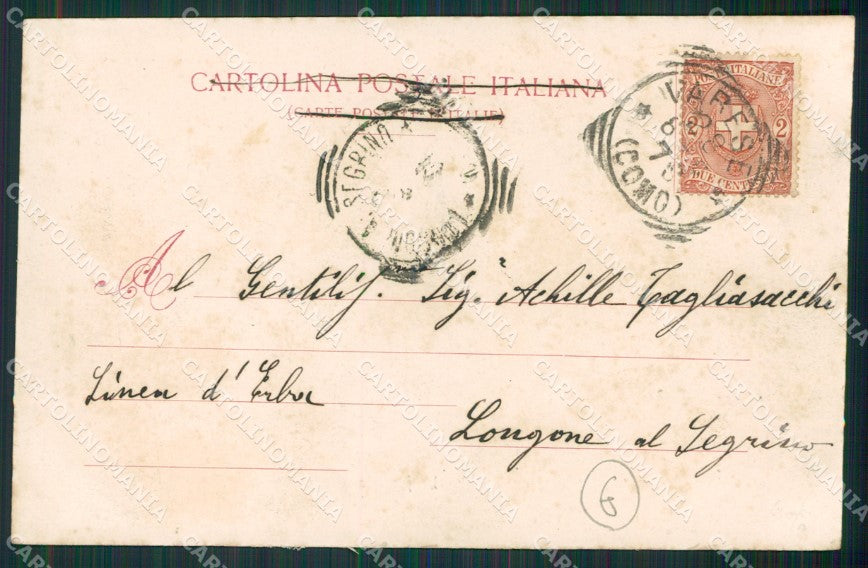 CARTOLINA POSTALE ITALIANA
(CARTE POSTALE D'ITALIE)
POSTE ITALIANE
2 2
DUE CENT
VARESE
(COMO)
SEGRINO
Al Gentilis. Sig. Achille Tagliasacchi
Linea d'Erba
Longone al Segrino
6
CARTOLINOMANIA